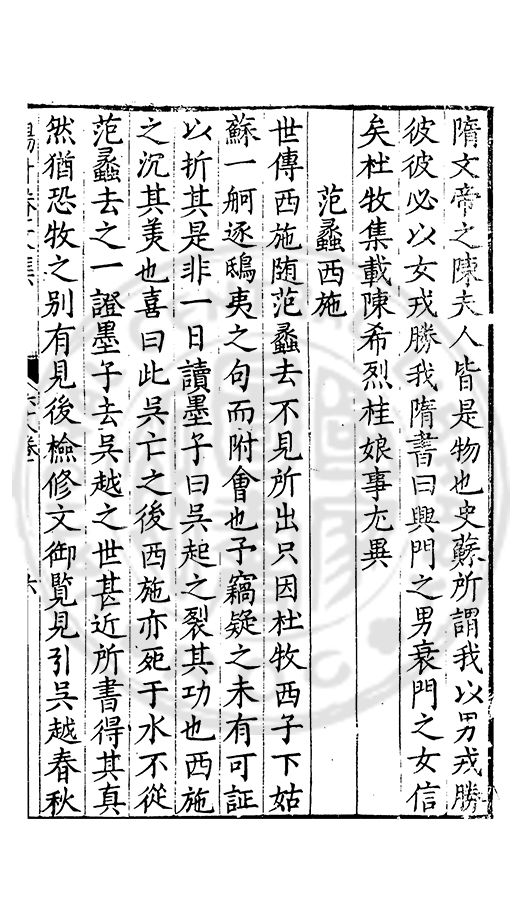 隋文帝之陳夫人皆是物也史蘇所謂我以男戎勝
彼彼必以女戎勝我隋書曰興門之男衰門之女信
矣杜牧集載陳希烈桂娘事尤異
范蠡西施
世傳西施随范蠡去不見所出只因杜牧西子下姑
蘇一舸逐鴟夷之句而附會也予竊疑之未有可証
以折其是非一日讀墨子曰吳起之裂其功也西施
之沉其美也喜曰此吳亡之後西施亦死于水不從
范蠡去之一證墨子去吳越之世甚近所書得其真
然猶恐牧之别有見後檢修文御覧見引吳越春秋